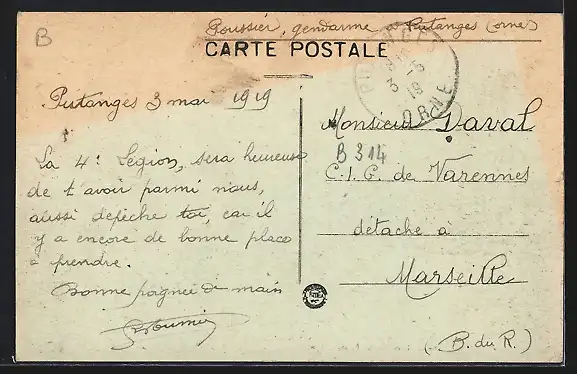 B
Poussier, gendarme, Putanges (Orne)
CARTE POSTALE
PUTANGES
3 -5
19
ORNE
Putanges 3 mai 1919
La 4e Légion, sera heureuse
de t'avoir parmi nous,
aussi dépêche toi, car il
y a encore de bonne place
à prendre.
Bonne poignée de main
Monsieur Daval
B 314
C.I.G. de Varennes
détaché à
Marseille
(B. du R.)